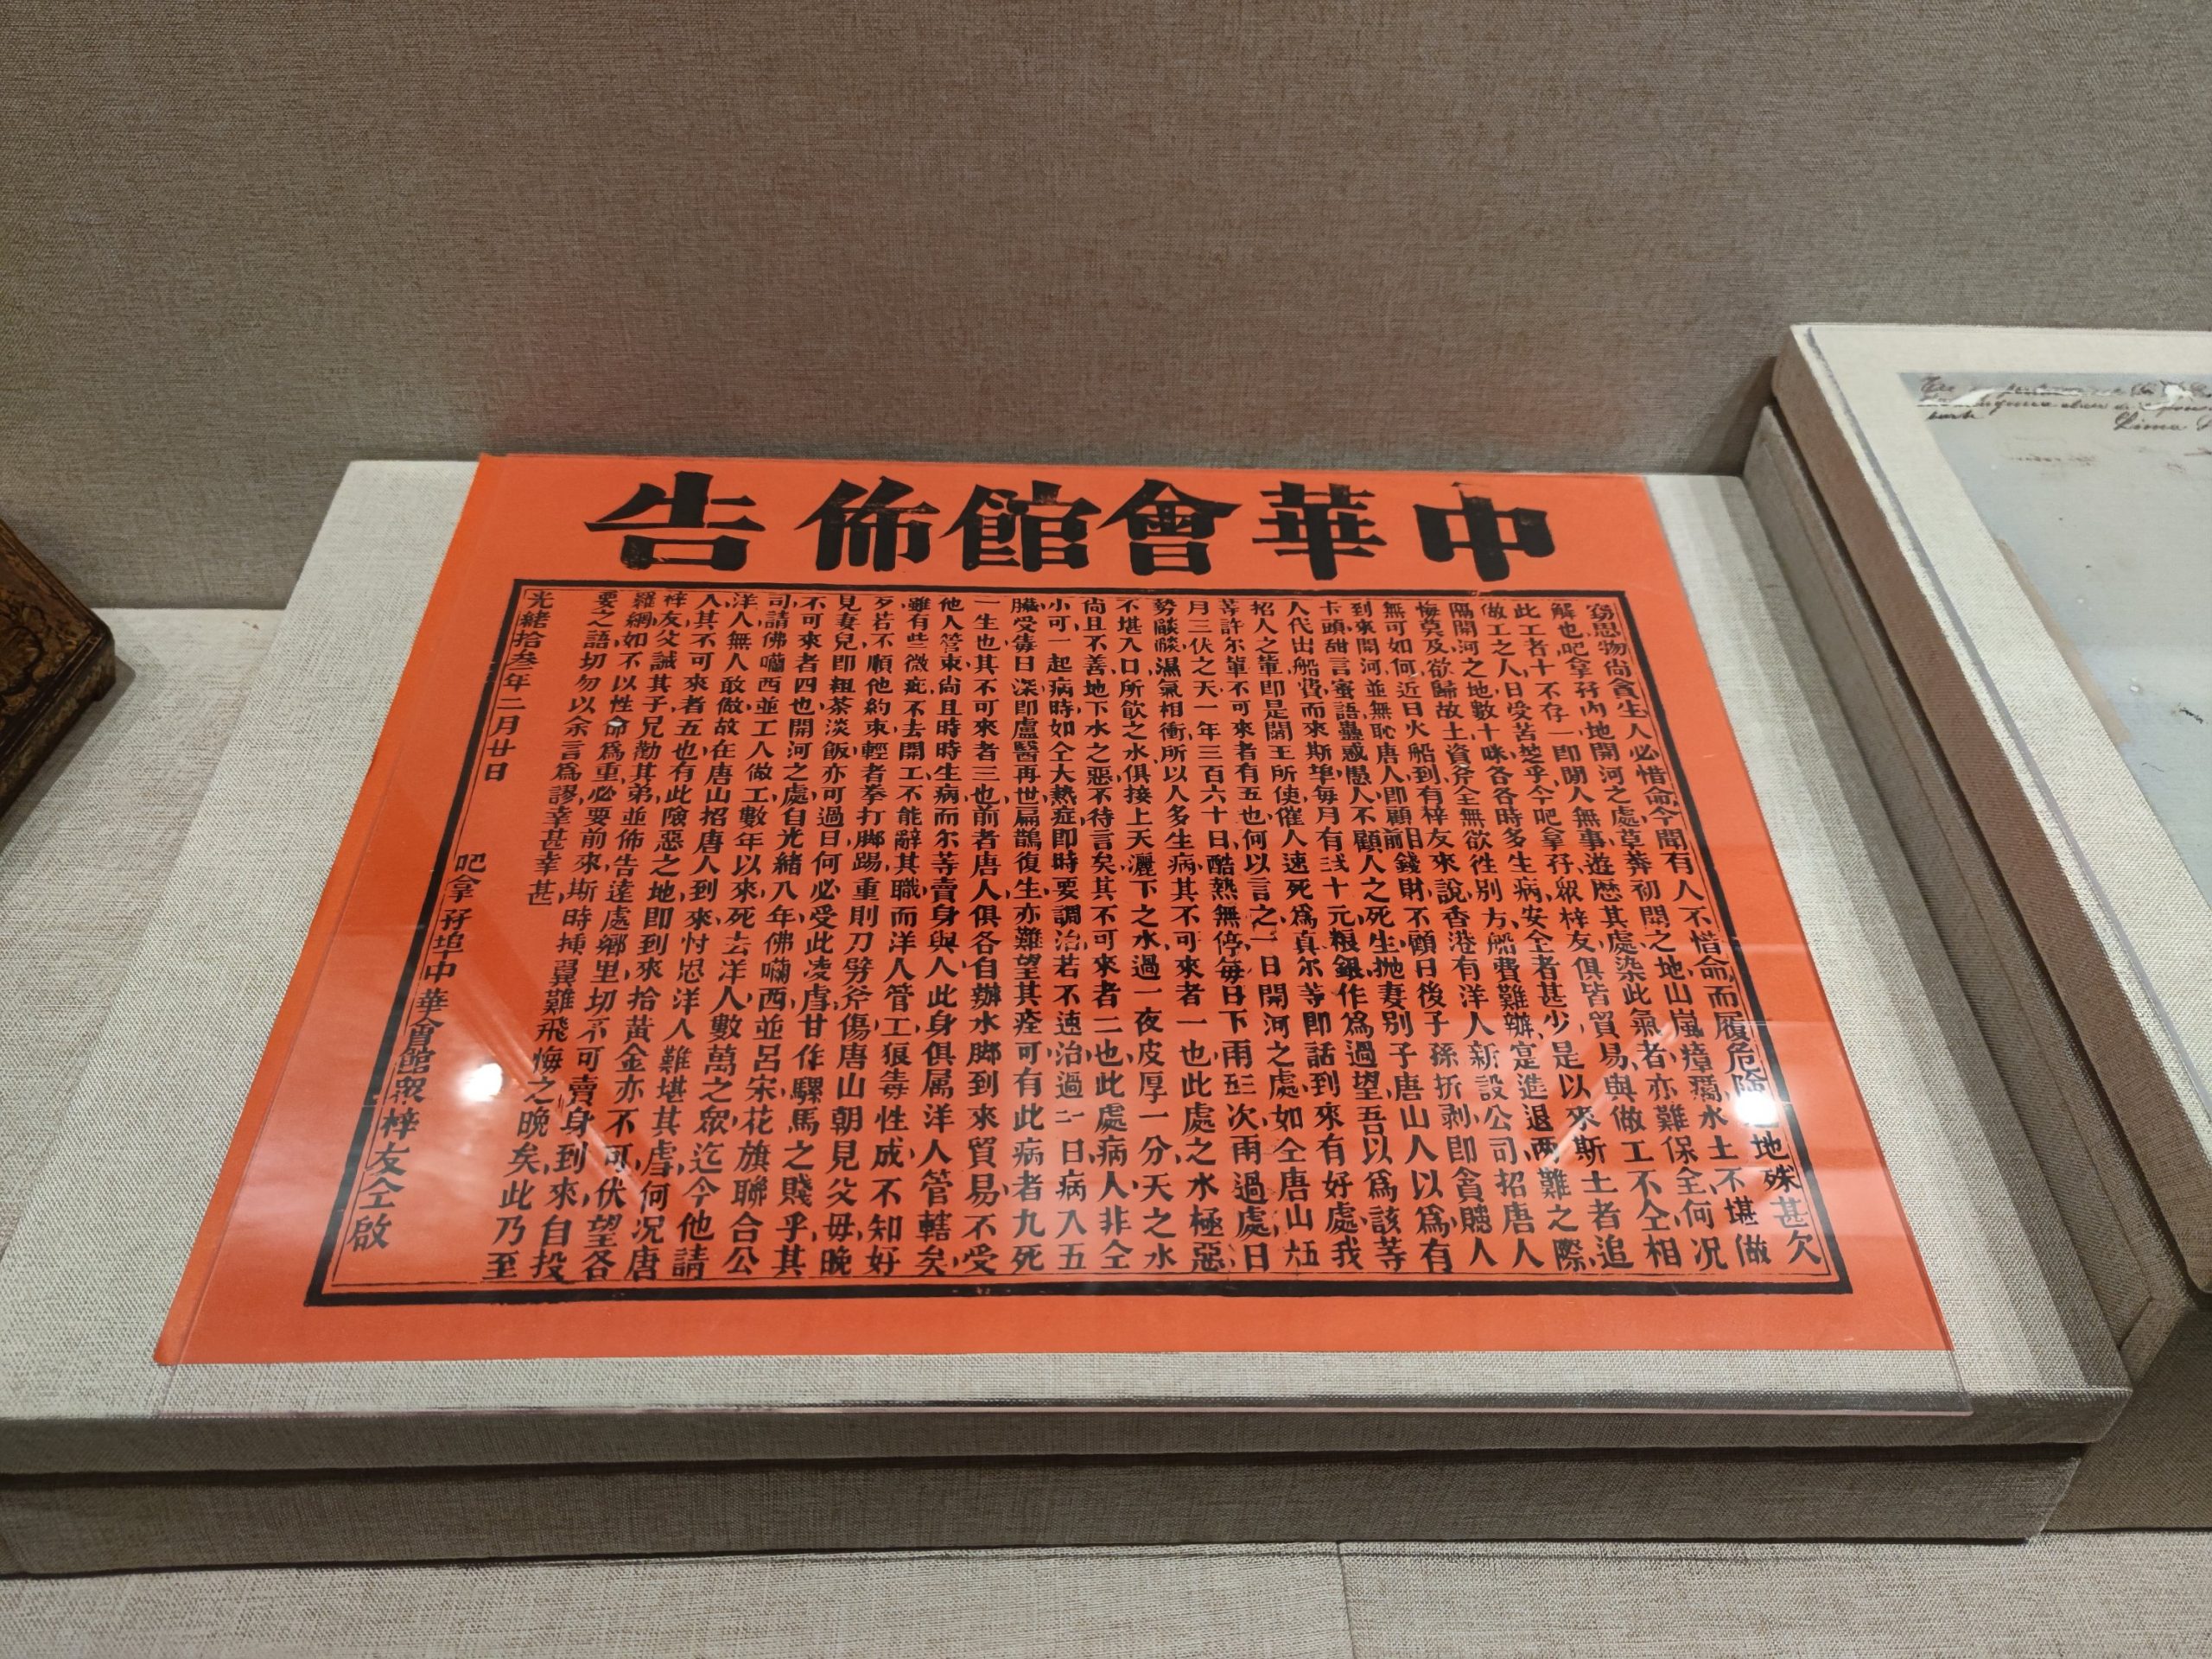 中華會館佈告
窃思物尚貪生人必惜命今聞有人不惜命而履危險地殊甚欠
解也吧拿孖內地開河之處草莽初開之地山嵐瘴癘水土不堪做
此工者十不存一即閒人無事遊歷其處染此氣者亦難保全何况
做工之人日受苦楚乎今吧拿孖眾梓友俱皆貿易與做工不仝相
隔開河之地數十咪各各時多生病安全者甚少是以來斯土者追
悔莫及欲歸故土資斧全無欲徃別方船費難辦寔進退兩難之際
無可如何近日火船到有梓友來說香港有洋人新設公司招唐人
到來開河並無恥唐人即顧前錢財不顧日後子孫折剥即貪人
卡頭甜言蜜語蠱惑愚人不顧人之死生抛妻別子唐山人以為有
人代出船費而來斯埠每月有弎十元粮銀作為過望吾以為該等
招人之軰即是閻王所使催人速死為真尔等即話到來有好處我
許尔軰不可來者有五也何以言之一日開河之處如仝唐山五
月三伏之天一年三百六十日酷熱無停每日下雨三次雨過處日
勢燄燄濕氣相衝所以人多生病其不可來者一也此處之水極惡
不堪入口所飲之水俱接上天灑下之水過一夜皮厚一分天之水
尚且不善地下水之惡不待言矣其不可來者二也此處病人非仝
小可一起病時如仝大熱症即時要調治若不速治過一二日病入五
臟受毒日深即盧醫再世扁鵲復生亦難望其痊可有此病者九死
一生也其不可來者三也前者唐人俱各自辦水脚到來貿易不受
他人管束尚且時時生病而尔等賣身與人此身俱属洋人管轄矣
雖有些微疵不去開工不能辭其職而洋人管工狼毒性成不知好
歹若不順他約束輕者拳打脚踢重則刀劈斧傷唐山朝見父毋晚
見妻兒即粗茶淡飯亦可過日何必受此凌虐甘作騾馬之賤乎其
不可來者四也開河之處自光緒八年佛囒西並呂宋花旗聯合公
司請佛囒西並工人做工數年以來死去洋人數萬之眾迄今他請
洋人無人敢做故在唐山招唐人到來忖思洋人難堪其虐何況唐
人其不可來者五也有此險惡之地即到來拾黃金亦不可伏望各
梓友父誡其子兄勸其弟並佈告逺處鄉里切不可賣身到來自投
羅網如不以性命為重必要前來斯時揷翼難飛悔之晚矣此乃至
要之語切勿以余言為謬幸甚幸甚
光緒拾叁年二月廿日
吧拿孖埠中華會館眾梓友仝啟
Lima